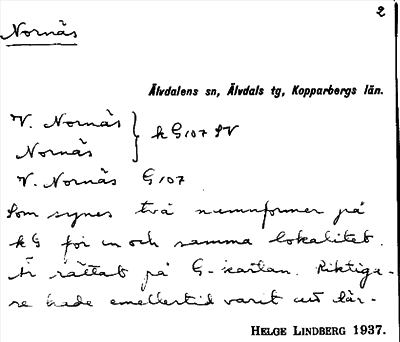 2
Nornäs
Älvdalens sn, Älvdals tg, Kopparbergs län.
V. Nornäs } k G 107 SV
Nornäs
V. Nornäs G 107
Som synes två namnformer på
k G för en och samma lokalitet.
Är rättat på G-kartan. Riktiga-
re hade emellertid varit att där-
HELGE LINDBERG 1937.